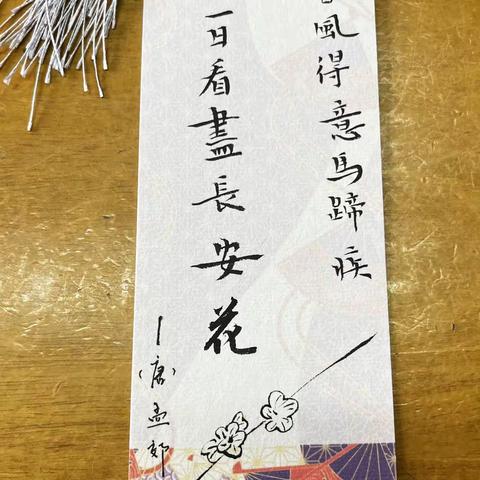 風得意馬蹄疾
一日看盡長安花
—（唐）孟郊